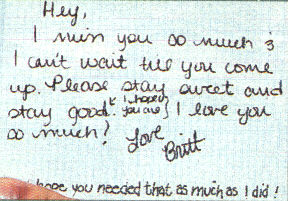 Hey,
I miss you so much &
I can't wait till you come
up. Please stay sweet and
stay good. (& I hope you are) I love you
so much!
Love
Britt
hope you needed that as much as I did!